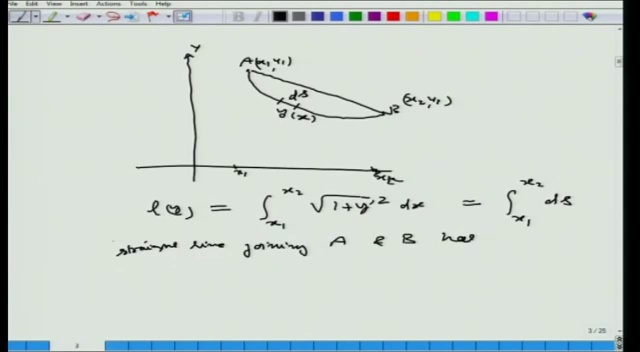 File Edit View Insert Actions Tools Help
Y
A(x₁,y₁)
ds
B (x₂,y₁)
y(x)
x₁ x₂
l(y) = ∫_{x₁}^{x₂} √(1+y'²) dx = ∫_{x₁}^{x₂} ds
straight line joining A & B has
3 / 25
3